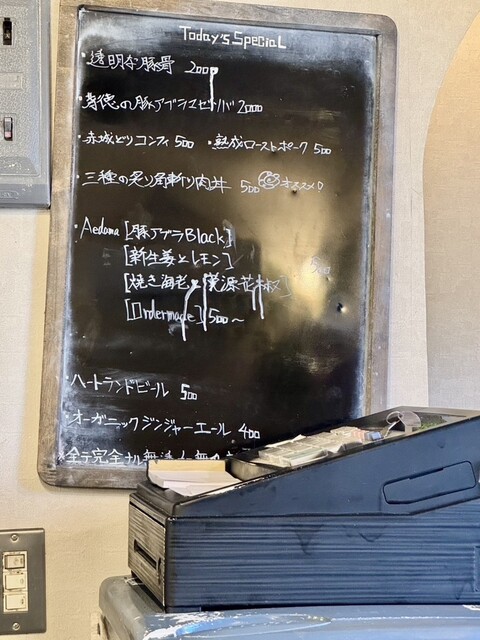 Today's Special
・透明な豚骨 2000
・背徳の豚アブラマゼソバ 2000
・赤城どりコンフィ 500 ・熟成ローストポーク 500
・三種の炙り角斬り肉丼 500 オススメ!
・Aedama [豚アブラBlack]
[新生姜とレモン]
[焼き海老と漢源花椒] 500
[Ordermade] 500~
・ハートランドビール 500
・オーガニックジンジャーエール 400
※全テ完全ナル無